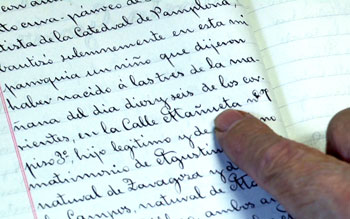 to cura, párroco de
tista de la Catedral de Pamplona
bautizó solemnemente en esta mi
parroquia un niño que dijeron
haber nacido á las tres de la ma
ñana del dia diez y seis de los cor
rientes, en la Calle Mañueta nº
piso 3º, hijo legitimo y de
matrimonio de Agustin
natural de Zaragoza y d
Campos, natural de
ambos